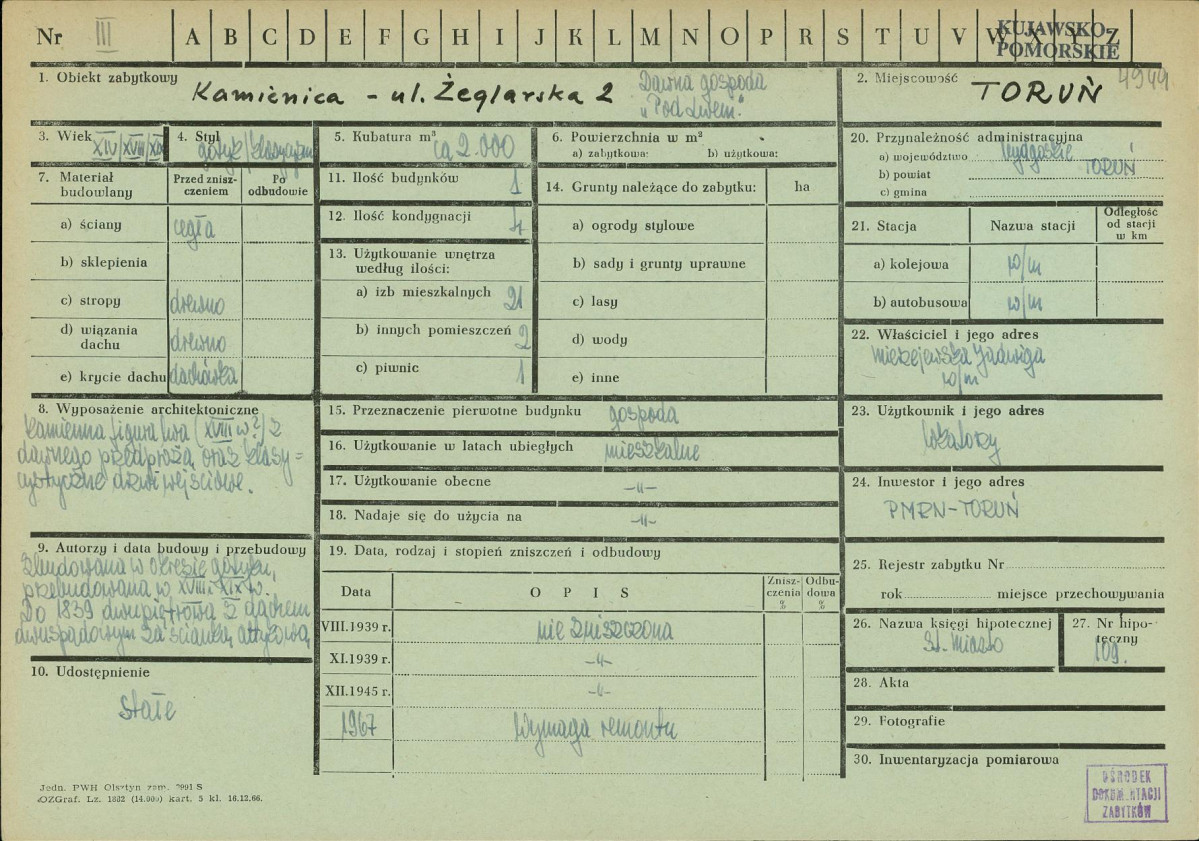 Nr III A B C D E F G H I J K L M N O P R S T U V W X Y Z
KUJAWSKO-
POMORSKIE
4944
1. Obiekt zabytkowy
Kamienica - ul. Żeglarska 2
Dawna gospoda
„Pod Lwem".
2. Miejscowość
TORUŃ
3. Wiek
XIV/XVIII/XIX
4. Styl
gotyk/klasycyzm
5. Kubatura m³
ca 2.000
6. Powierzchnia w m²
a) zabytkowa: b) użytkowa:
7. Materiał
budowlany
Przed znisz-
czeniem
Po
odbudowie
a) ściany cegła
b) sklepienia
c) stropy drewno
d) wiązania
dachu drewno
e) krycie dachu dachówka
11. Ilość budynków 1
12. Ilość kondygnacji 4
13. Użytkowanie wnętrza
według ilości:
a) izb mieszkalnych 21
b) innych pomieszczeń 2
c) piwnic 1
14. Grunty należące do zabytku: ha
a) ogrody stylowe
b) sady i grunty uprawne
c) lasy
d) wody
e) inne
20. Przynależność administracyjna
a) województwo bydgoskie
b) powiat TORUŃ
c) gmina
21. Stacja Nazwa stacji
Odległość
od stacji
w km
a) kolejowa w/m
b) autobusowa w/m
22. Właściciel i jego adres
Jadwiga
w/m
8. Wyposażenie architektoniczne
Kamienna figura lwa (XVIII w?) z
dawnego przedproża, oraz klasy=
cystyczne drzwi wejściowe.
15. Przeznaczenie pierwotne budynku gospoda
16. Użytkowanie w latach ubiegłych mieszkalne
17. Użytkowanie obecne -„-
18. Nadaje się do użycia na -„-
23. Użytkownik i jego adres
lokatorzy
24. Inwestor i jego adres
PMRN-TORUŃ
9. Autorzy i data budowy i przebudowy
Zbudowana w okresie gotyku,
przebudowana w XVIII i XIX w.
Do 1839 dwupiętrowa z dachem
dwuspadowym za ścianką attykową
19. Data, rodzaj i stopień zniszczeń i odbudowy
Data O P I S
Znisz-
czenia
%
Odbu-
dowa
%
VIII.1939 r. nie zniszczona
XI.1939 r. -„-
XII.1945 r. -„-
1967 Wymaga remontu
25. Rejestr zabytku Nr
rok miejsce przechowywania
26. Nazwa księgi hipotecznej
St. Miasto
27. Nr hipo-
teczny
109.
10. Udostępnienie
stałe
28. Akta
29. Fotografie
30. Inwentaryzacja pomiarowa
OŚRODEK
DOKUMENTACJI
ZABYTKÓW
Jedn. PWH Olsztyn zam. 2991 S
OZGraf. Lz. 1832 (14.000) kart. 5 kl. 16.12.66.